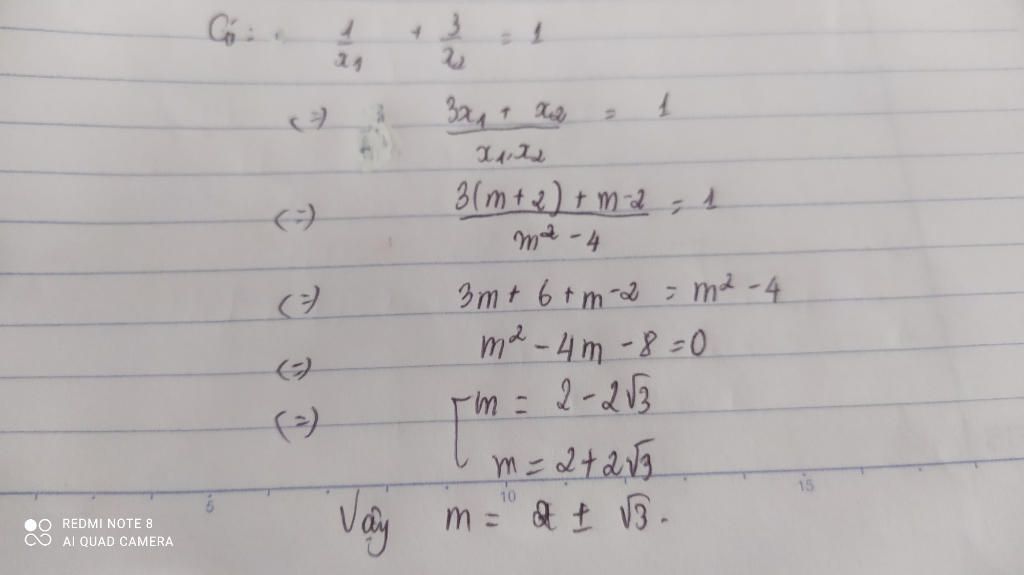 Có: 1/x₁ + 3/x₂ = 1
(=) (3x₁ + x₂)/(x₁.x₂) = 1
(=) (3(m+2) + m-2)/(m² - 4) = 1
(=) 3m + 6 + m - 2 = m² - 4
(=) m² - 4m - 8 = 0
(=) [ m = 2 - 2√3
m = 2 + 2√3
5 10 15
Vậy m = 2 ± √3.
REDMI NOTE 8
AI QUAD CAMERA